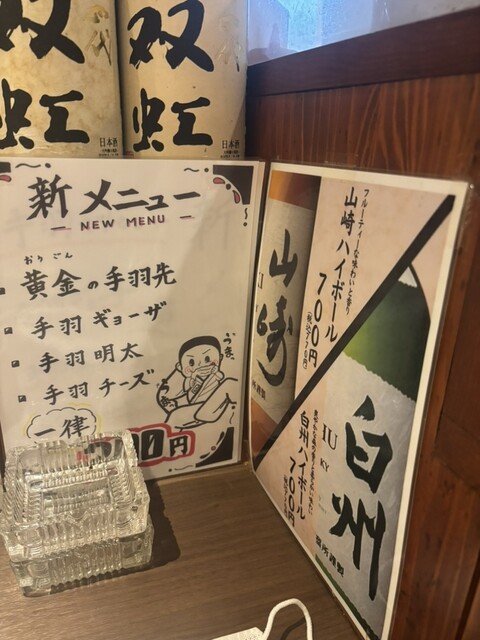 双
虹
日本酒
双
虹
日本酒
新メニュー
NEW MENU
おりごん
黄金の手羽先
手羽ギョーザ
手羽明太
手羽チーズ
一律
00円
うま
山崎
フルーティーな味わいと香り
山崎ハイボール
700円
(税込770円)
白州
IU
KY
白州ハイボール
700